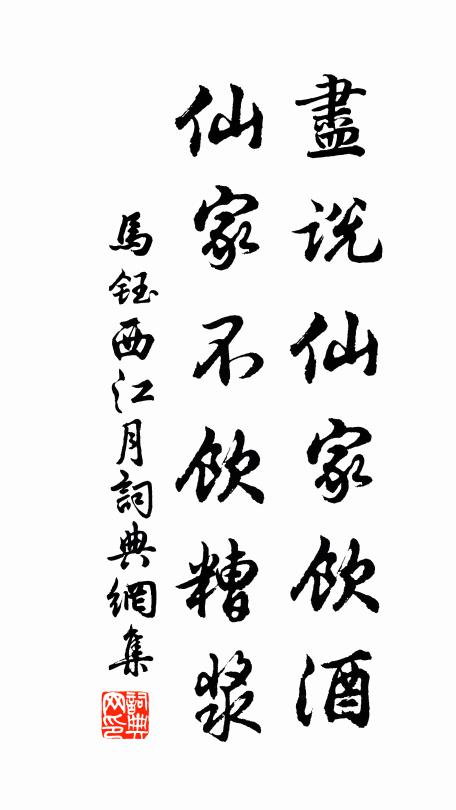 盡説仙家飲酒
仙家不飲糟漿
馬鈺西江月詞典網集
詞典网印